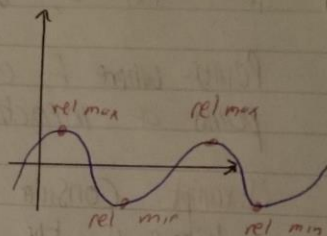 rel max
rel max
rel min
rel min